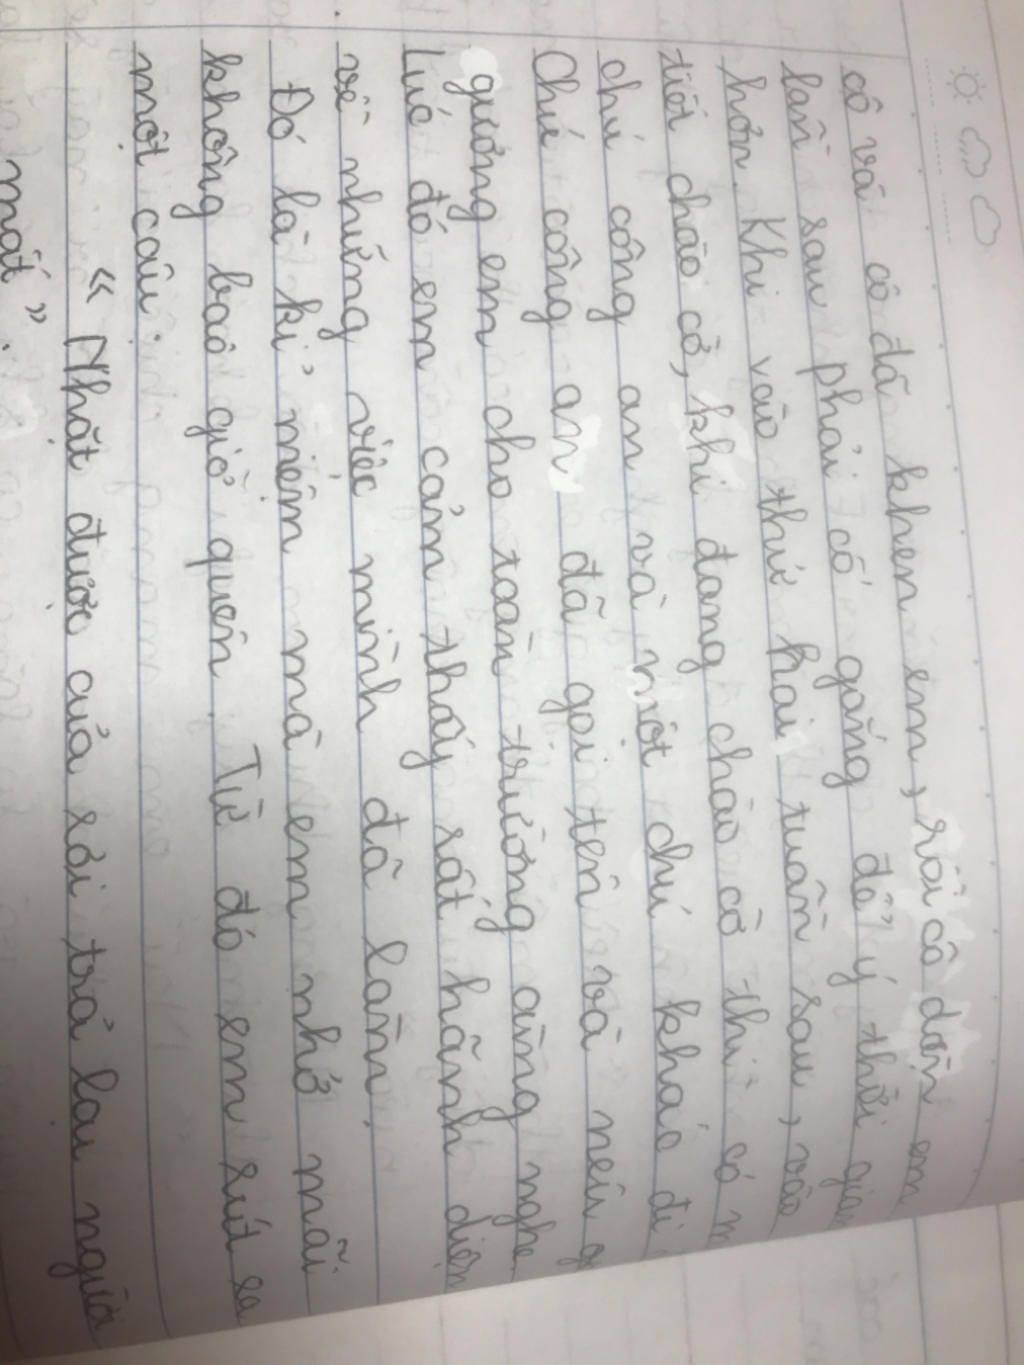 cô và cô đã khen em, rồi cô dặn em
lần sau phải cố gắng để ý thời gian
hơn. Khi vào thứ hai tuần sau, vào
tiết chào cờ, khi đang chào cờ thì có m
chú công an và một chú khác đi
Chú công an đã gọi tên và nêu g
gương em cho toàn trường cùng nghe
Lúc đó em cảm thấy rất hãnh diện
về những việc mình đã làm.
Đó là kỉ niệm mà em nhớ mãi
không bao giờ quên. Từ đó em rút ra
một câu:
« Nhặt được của rơi trả lại người
mất ».